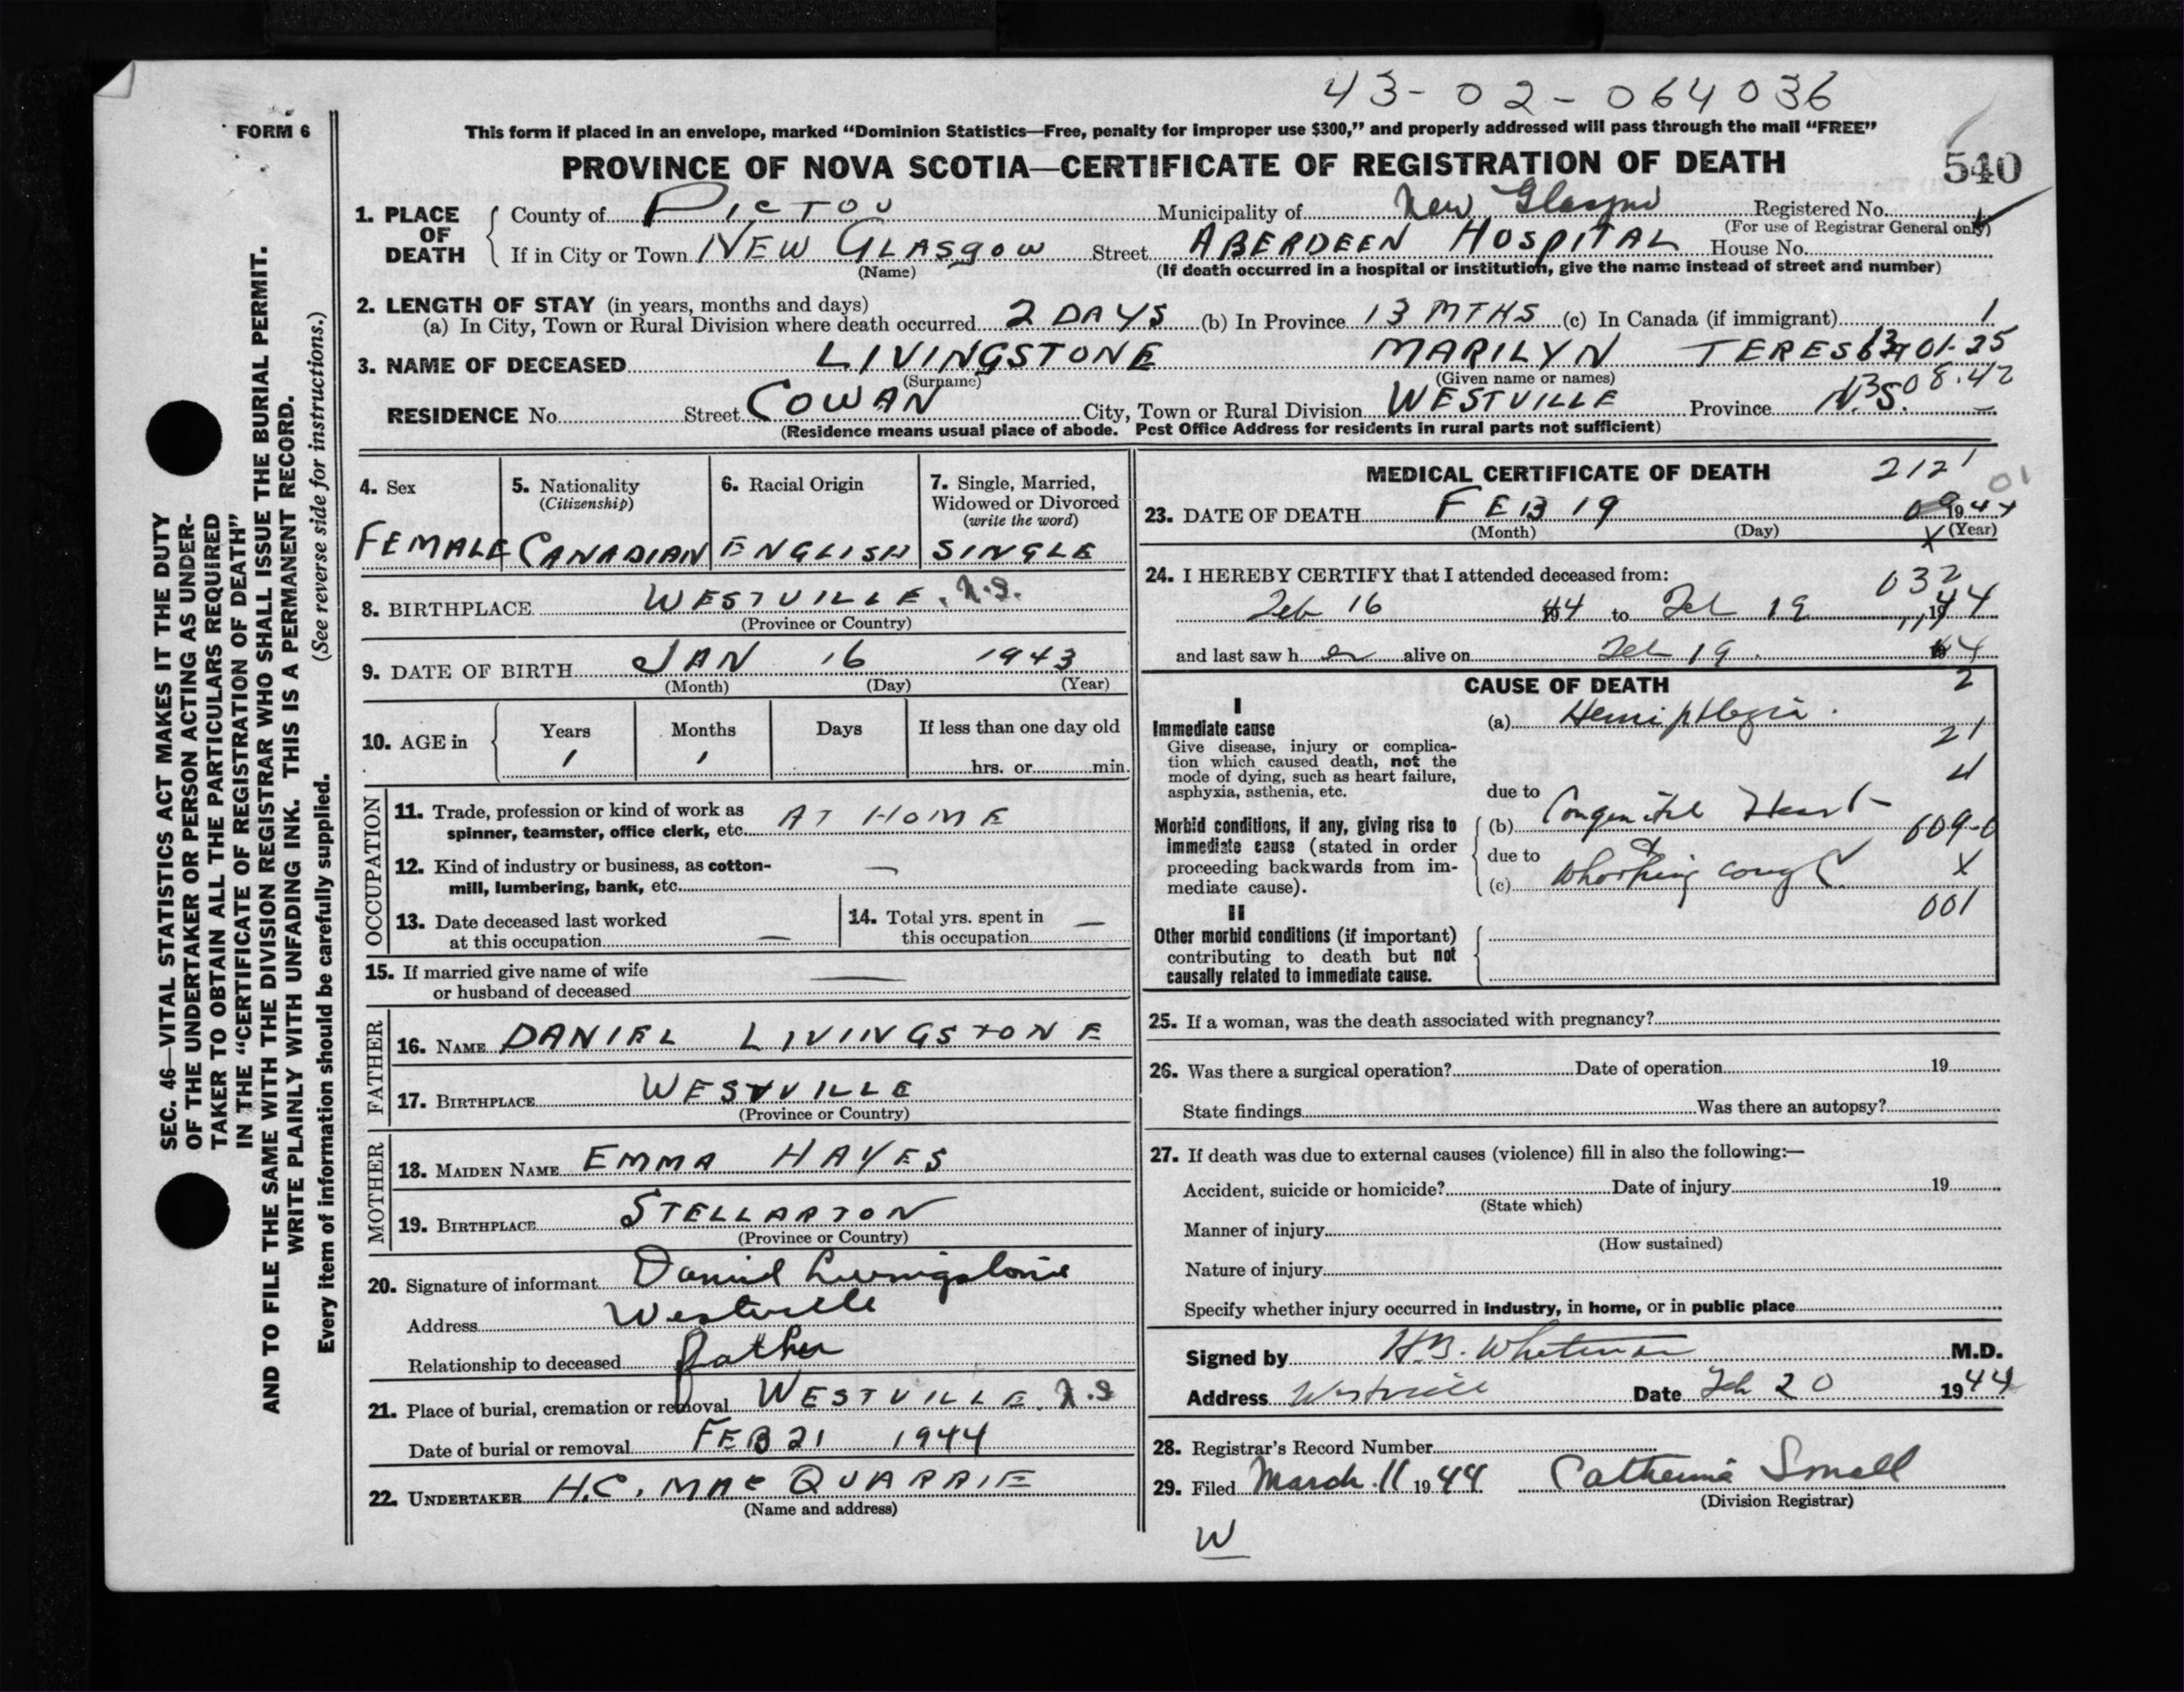 43-02-064036
FORM 6
This form if placed in an envelope, marked "Dominion Statistics—Free, penalty for improper use $300," and properly addressed will pass through the mail "FREE"
PROVINCE OF NOVA SCOTIA—CERTIFICATE OF REGISTRATION OF DEATH
540
1. PLACE OF DEATH
County of PICTOU Municipality of New Glasgow Registered No.
(For use of Registrar General only)
If in City or Town NEW GLASGOW Street ABERDEEN HOSPITAL House No.
(Name) (If death occurred in a hospital or institution, give the name instead of street and number)
2. LENGTH OF STAY (in years, months and days)
(a) In City, Town or Rural Division where death occurred 2 DAYS (b) In Province 13 MTHS (c) In Canada (if immigrant) 1
3. NAME OF DECEASED LIVINGSTONE MARILYN TERESA 01.25
(Surname) (Given name or names)
08.42
RESIDENCE No. Street COWAN City, Town or Rural Division WESTVILLE Province N.S.
(Residence means usual place of abode. Post Office Address for residents in rural parts not sufficient)
4. Sex
FEMALE
5. Nationality
(Citizenship)
CANADIAN
6. Racial Origin
ENGLISH
7. Single, Married,
Widowed or Divorced
(write the word)
SINGLE
8. BIRTHPLACE WESTVILLE. N.S.
(Province or Country)
9. DATE OF BIRTH JAN 16 1943
(Month) (Day) (Year)
10. AGE in
Years Months Days If less than one day old
1 1 hrs. or min.
OCCUPATION
11. Trade, profession or kind of work as
spinner, teamster, office clerk, etc. AT HOME
12. Kind of industry or business, as cotton-
mill, lumbering, bank, etc. —
13. Date deceased last worked
at this occupation —
14. Total yrs. spent in
this occupation —
15. If married give name of wife
or husband of deceased —
FATHER
16. NAME DANIEL LIVINGSTONE
17. BIRTHPLACE WESTVILLE
(Province or Country)
MOTHER
18. MAIDEN NAME EMMA HAYES
19. BIRTHPLACE STELLARTON
(Province or Country)
20. Signature of informant Daniel Livingstone
Address Westville
Relationship to deceased father
21. Place of burial, cremation or removal WESTVILLE. N.S
Date of burial or removal FEB 21 1944
22. UNDERTAKER H.C. MACQUARRIE
(Name and address)
MEDICAL CERTIFICATE OF DEATH 2121
01
23. DATE OF DEATH FEB 19 1944
(Month) (Day) (Year)
X
24. I HEREBY CERTIFY that I attended deceased from:
032
Feb 16 44 to Feb 19 , 1944
and last saw h er alive on Feb 19. 44
CAUSE OF DEATH 2
I
Immediate cause
Give disease, injury or complica-
tion which caused death, not the
mode of dying, such as heart failure,
asphyxia, asthenia, etc.
(a) Hemiplegia.
21
4
Morbid conditions, if any, giving rise to
immediate cause (stated in order
proceeding backwards from im-
mediate cause).
due to
(b) Congenital Heart
609-0
due to &
(c) Whooping cough X
001
II
Other morbid conditions (if important)
contributing to death but not
causally related to immediate cause.
25. If a woman, was the death associated with pregnancy?
26. Was there a surgical operation? Date of operation 19
State findings Was there an autopsy?
27. If death was due to external causes (violence) fill in also the following:—
Accident, suicide or homicide? Date of injury 19
(State which)
Manner of injury
(How sustained)
Nature of injury
Specify whether injury occurred in industry, in home, or in public place
Signed by H.B. Whitman M.D.
Address Westville Date Feb 20 1944
28. Registrar's Record Number
29. Filed March 11 1944 Catherine Small
(Division Registrar)
W
SEC. 46—VITAL STATISTICS ACT MAKES IT THE DUTY
OF THE UNDERTAKER OR PERSON ACTING AS UNDER-
TAKER TO OBTAIN ALL THE PARTICULARS REQUIRED
IN THE "CERTIFICATE OF REGISTRATION OF DEATH"
AND TO FILE THE SAME WITH THE DIVISION REGISTRAR WHO SHALL ISSUE THE BURIAL PERMIT.
WRITE PLAINLY WITH UNFADING INK. THIS IS A PERMANENT RECORD.
Every item of information should be carefully supplied. (See reverse side for instructions.)